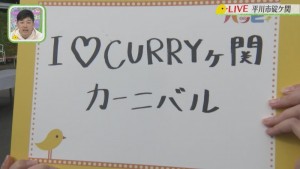 LIVE 平川市碇ケ関
I♡CURRYヶ関
カーニバル